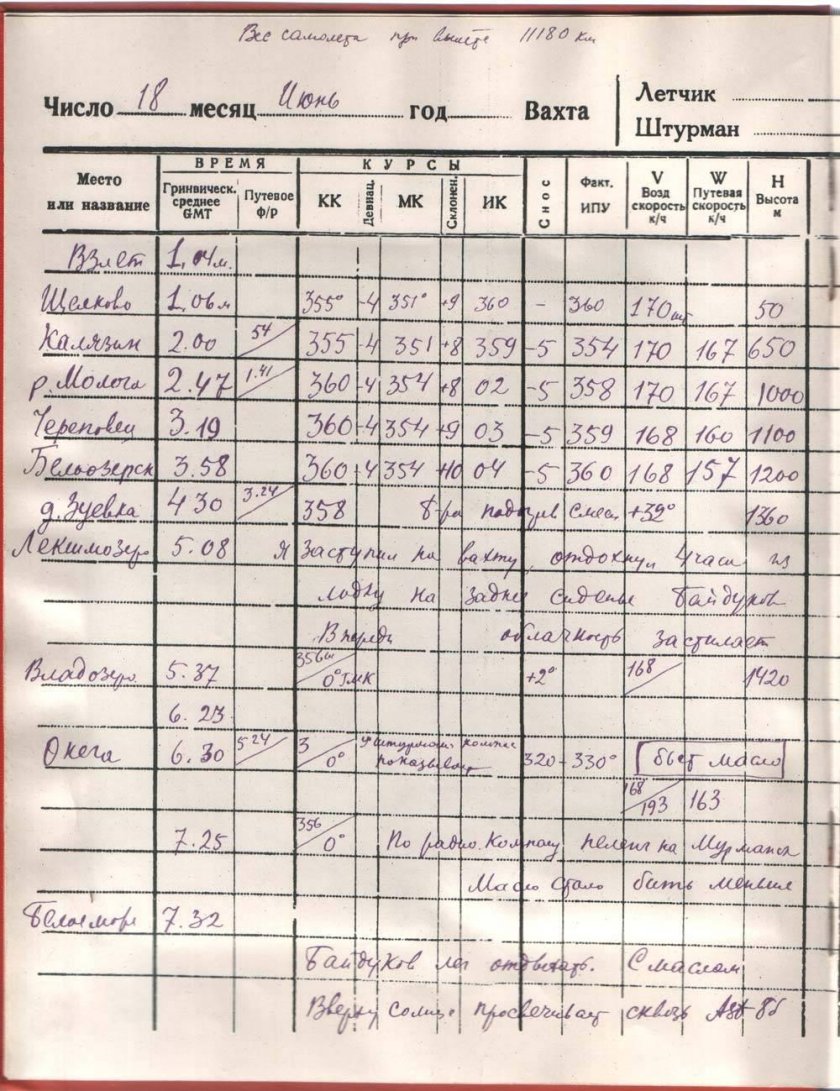 Вес самолета при вылете 11180 кг
Число 18 месяц Июнь год Вахта Летчик
Штурман
Место или название ВРЕМЯ Гринвическ. среднее GMT Путевое Ф/Р КУРСЫ КК Девиац. МК Склонен. ИК Снос Факт. ИПУ V Возд скорость к/ч W Путевая скорость к/ч H Высота м
Взлет 1,04м.
Щелково 1,06м 355° -4 351° +9 360 - 360 170 50
Калязин 2.00 54 355 -4 351 +8 359 -5 354 170 167 650
р. Молога 2.47 1.41 360 -4 354 +8 02 -5 358 170 167 1000
Череповец 3.19 360 -4 354 +9 03 -5 359 168 160 1100
Белоозерск 3.58 360 -4 354 +10 04 -5 360 168 157 1200
д. Зуевка 4 30 3.24 358 подогрев смеси +32° 1360
Лекшмозеро 5.08 Я заступил на вахту, отдохнул 4 часа
на заднее сиденье Байдуков
Впереди облачность застилает
Владозеро 5.37 0° +2° 168 1420
6.23
Онега 6.30 5 24 3 0° штурманск компас показывает 320-330° бьет масло
168 193 163
7.25 356 0° По радио.компасу пеленг на Мурманск
Масло стало бить меньше
Белое море 7.32
Байдуков лег отдыхать. С маслом
Вверху солнце просвечивает сквозь